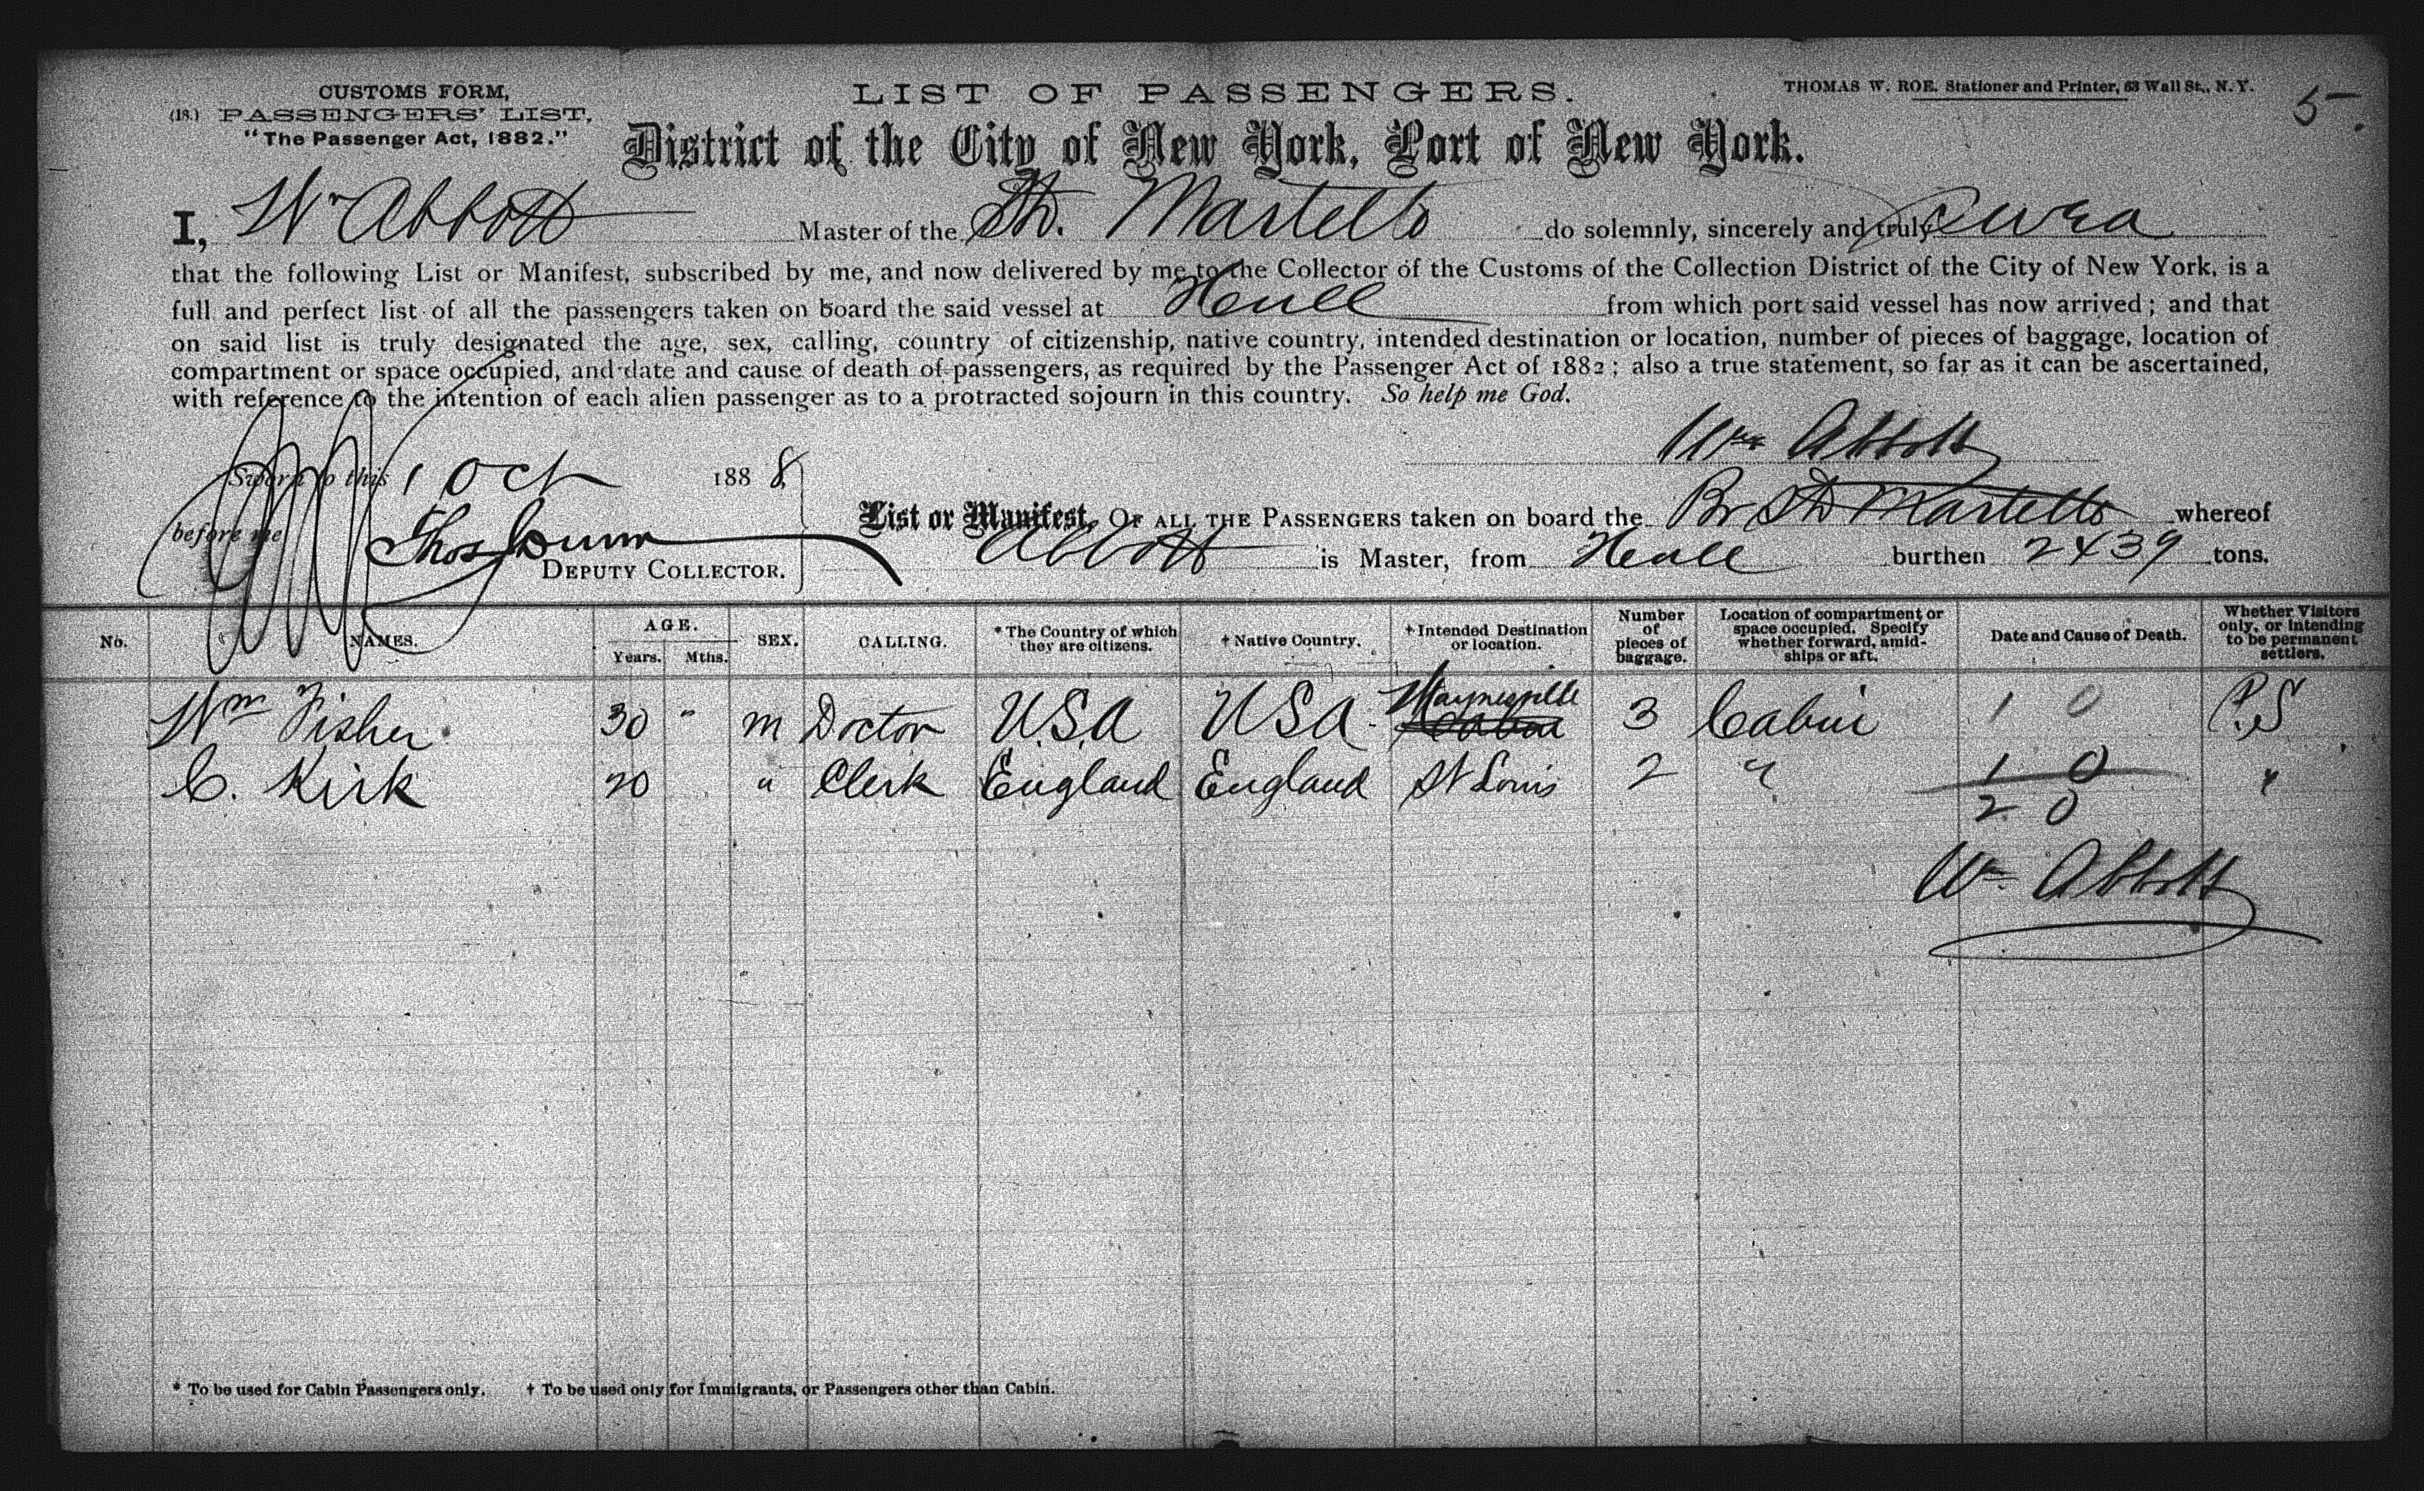 CUSTOMS FORM,
(18.) PASSENGERS' LIST,
"The Passenger Act, 1882."
LIST OF PASSENGERS.
THOMAS W. ROE, Stationer and Printer, 63 Wall St., N. Y.
5
District of the City of New York, Port of New York.
I, Wm Abbott Master of the SS. Martello do solemnly, sincerely and truly swear
that the following List or Manifest, subscribed by me, and now delivered by me to the Collector of the Customs of the Collection District of the City of New York, is a
full and perfect list of all the passengers taken on board the said vessel at Hull from which port said vessel has now arrived; and that
on said list is truly designated the age, sex, calling, country of citizenship, native country, intended destination or location, number of pieces of baggage, location of
compartment or space occupied, and date and cause of death of passengers, as required by the Passenger Act of 1882; also a true statement, so far as it can be ascertained,
with reference to the intention of each alien passenger as to a protracted sojourn in this country. So help me God.
Wm Abbott
Sworn to this 1 Oct 1888
before me Thos Dunn
DEPUTY COLLECTOR.
List or Manifest, OF ALL THE PASSENGERS taken on board the Br SS Martello whereof
Abbott is Master, from Hull burthen 2439 tons.
No. NAMES. AGE. Years. Mths. SEX. CALLING. * The Country of which they are citizens. † Native Country. † Intended Destination or location. Number of pieces of baggage. Location of compartment or space occupied. Specify whether forward, amidships or aft. Date and Cause of Death. Whether Visitors only, or intending to be permanent settlers.
Wm Fisher 30 " m Doctor U.S.A USA Waynesville 3 Cabin 1 0 P.S
C. Kirk 20 " Clerk England England St Louis 2 " 1 0 "
2 0
Wm Abbott
* To be used for Cabin Passengers only. † To be used only for Immigrants, or Passengers other than Cabin.